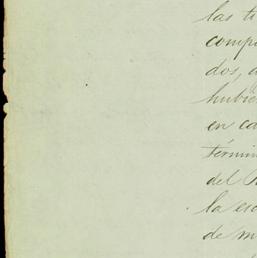 las ti
compr
dos, a
hubie
en ca
términ
del
la esc
de m